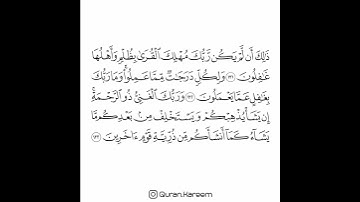 ذَٰلِكَ أَن لَّمْ يَكُن رَّبُّكَ مُهْلِكَ ٱلْقُرَىٰ بِظُلْمٍ وَأَهْلُهَا
غَٰفِلُونَ ١٣١ وَلِكُلٍّ دَرَجَٰتٌ مِّمَّا عَمِلُوا۟ وَمَا رَبُّكَ
بِغَٰفِلٍ عَمَّا يَعْمَلُونَ ١٣٢ وَرَبُّكَ ٱلْغَنِىُّ ذُو ٱلرَّحْمَةِ
إِن يَشَأْ يُذْهِبْكُمْ وَيَسْتَخْلِفْ مِنۢ بَعْدِكُم مَّا
يَشَآءُ كَمَآ أَنشَأَكُم مِّن ذُرِّيَّةِ قَوْمٍ ءَاخَرِينَ ١٣٣
Quran.Kareem